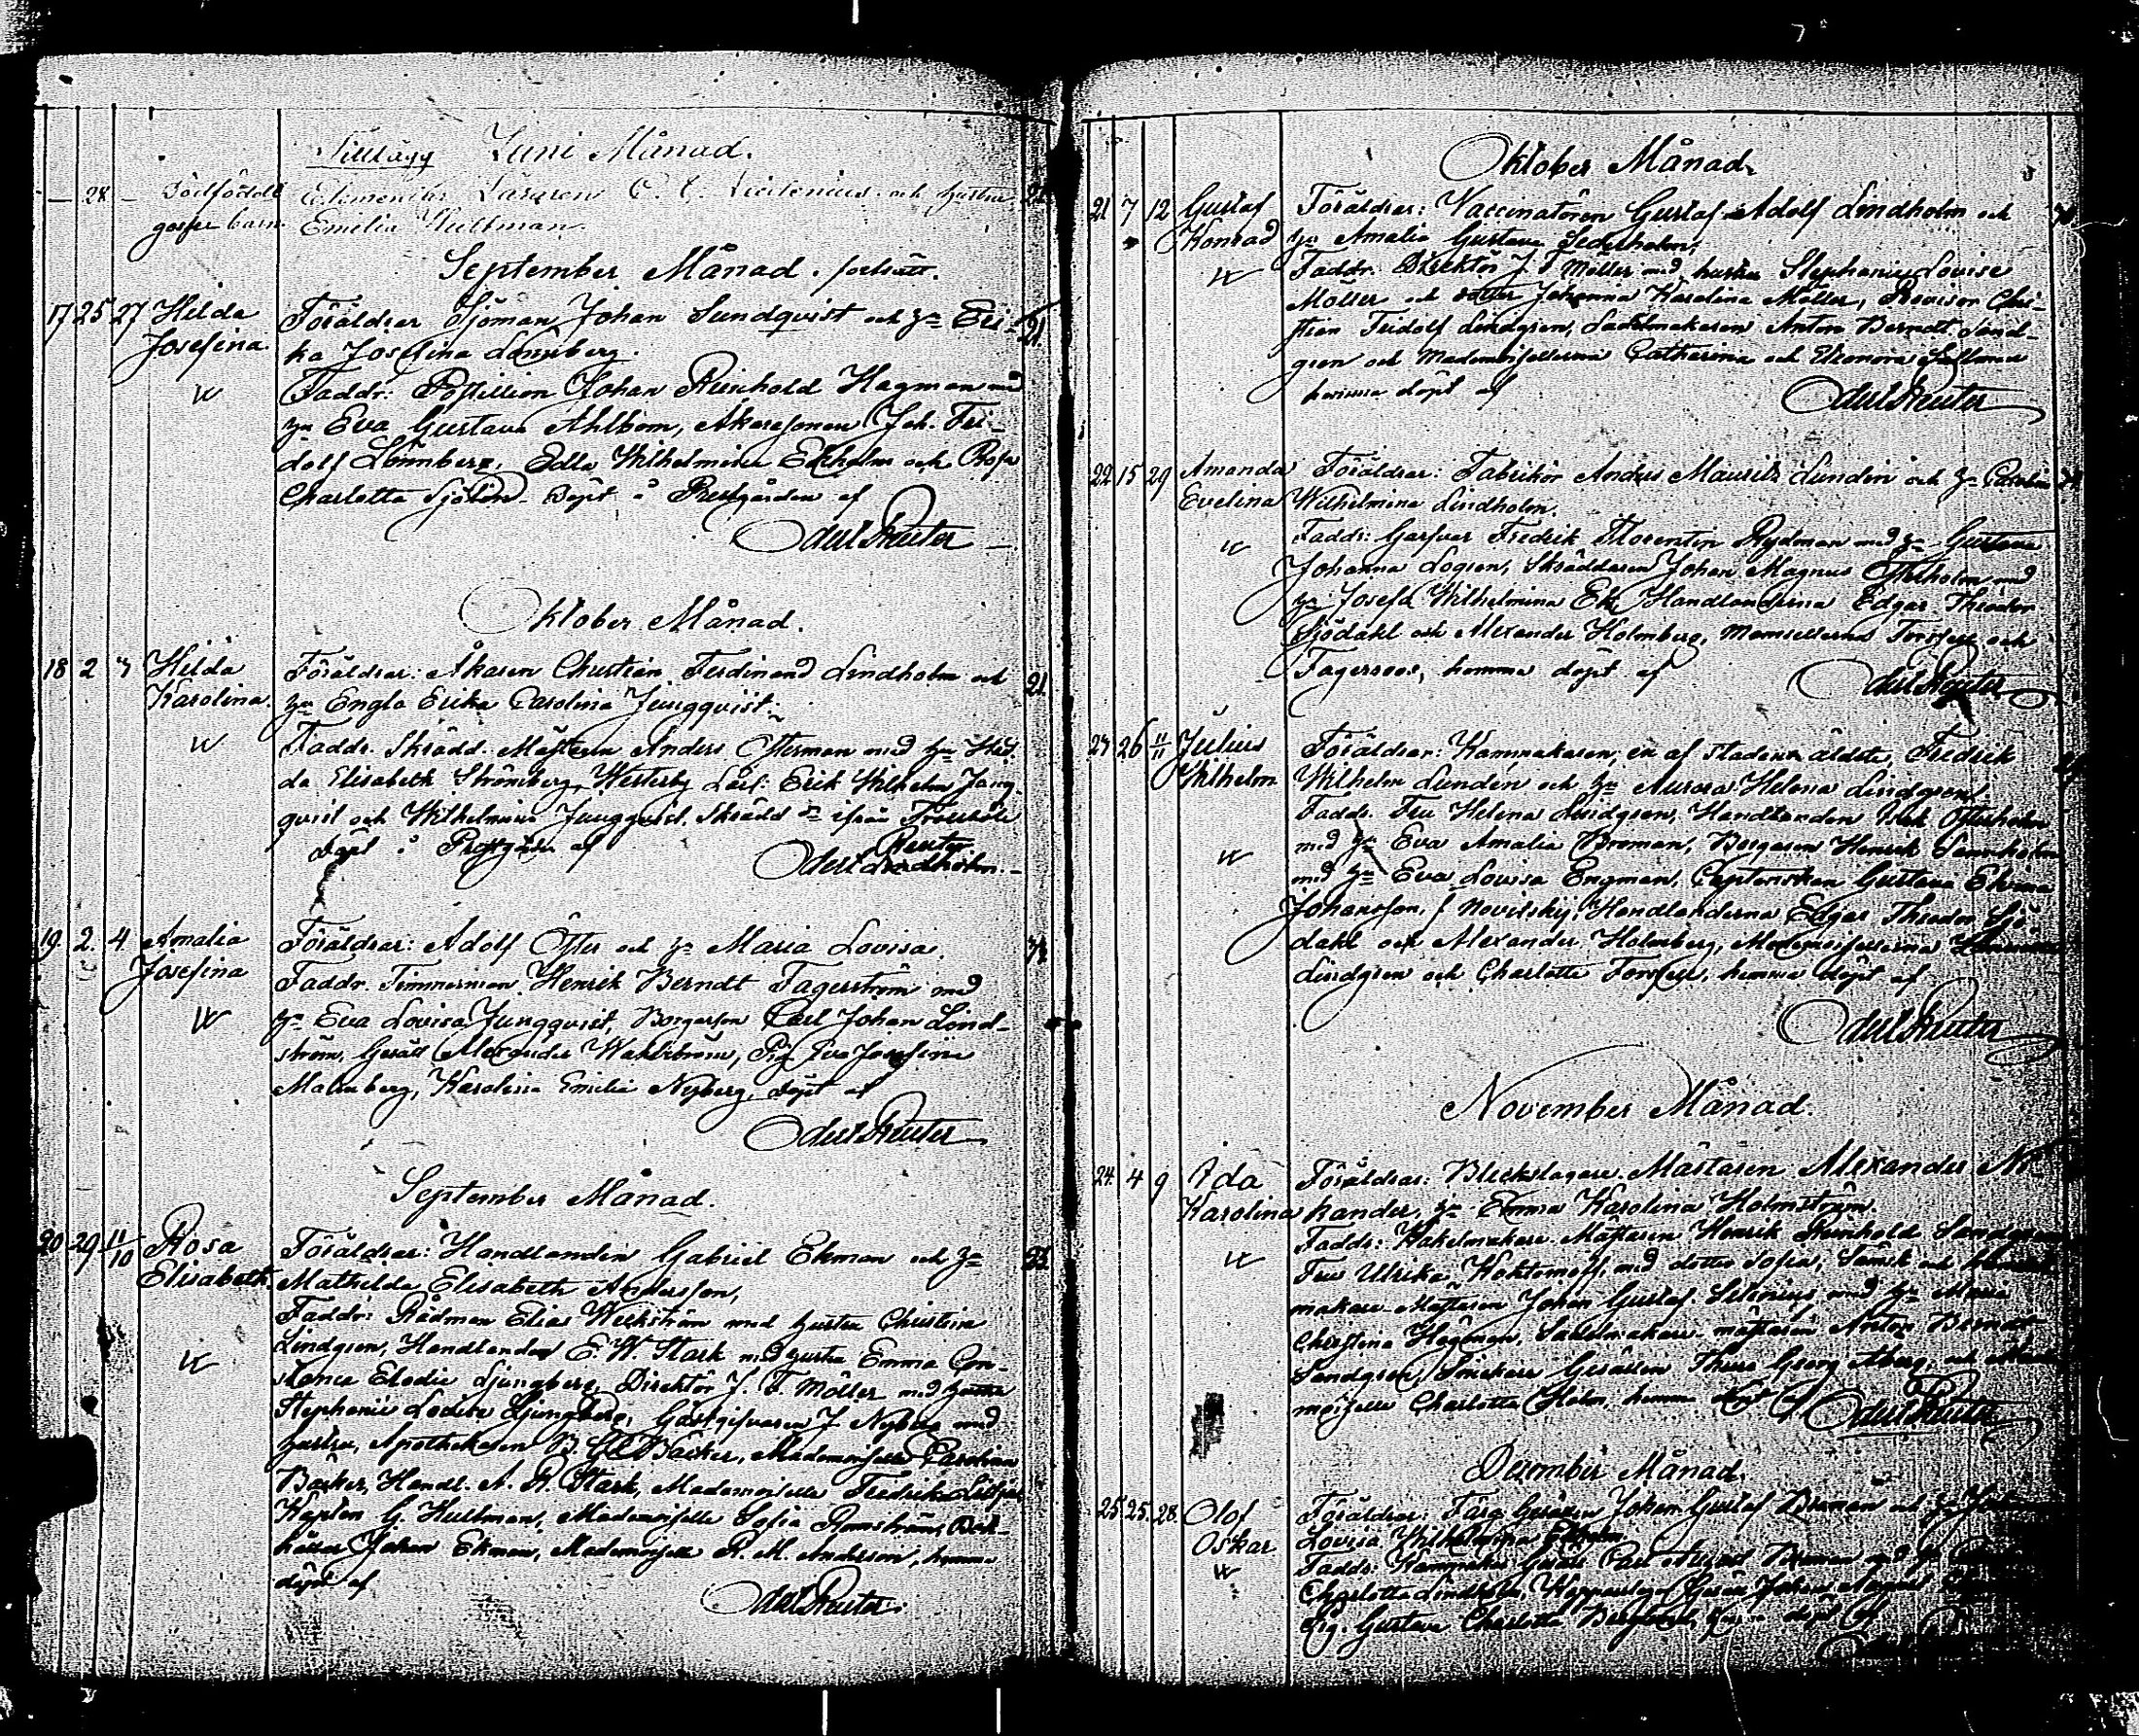 Tillägg Juni Månad.
— 28 — Dödfödt Elementar Läraren och hustru
barn. Emelia Hultman
September Månad. fortsätt.
17 25 27 Hilda Föräldrar Sjöman Johan Sundqvist och hn Eri- 21.
Josefina. ka Josefina Lönnberg.
Faddr: Postillion Johan Reinhold Hagman med
hn Eva Gustava Ahlbom, Åkaresonen Joh. Fri-
dolf Lönnberg, Edla Wilhelmina Ekholm och Rosa
Charlotta Sjölin. Döpt å Prestgården af
Adert Reuter
Oktober Månad.
18 2 3 Hilda Föräldrar: Åkaren Christian Ferdinand Lindholm och 21.
Karolina. hn Engla Erika Carolina Jungqvist.
Faddr. Skrädd. Mästaren Anders Österman med hn Hed-
da Elisabeth Strömberg, Westerby Erik Wilhelm Jung-
qvist och Wilhelmina Jungqvist. Skrädd ifrån
Döpt i Prestgården af Reuter
Lindholm.
19. 2. 4 Amalia Föräldrar: Adolf Öster och hn Maria Lovisa.
Josefina Faddr. Timmerman Henrik Berndt Fagerström med
hn Eva Lovisa Jungqvist, Borgarson Carl Johan Lind-
ström, Gesäll Alexander Wahlström, Pig. Eva Josefina
Malmberg, Karolina Emilia Nyberg, döpt af
Adert Reuter
September Månad.
20 29 11/10 Rosa Föräldrar: Handlanden Gabriel Ekman och hn
Elisabeth. Mathilda Elisabeth Andersson,
Faddr: Rådman Elias Wickström med hustru Christina
Lindgren, Handlanden E. W Stark med hustru Emma Con-
stance Elodie Ljungberg, Direktör J. F. Möller med hustru
Stephanie Lovise Ljungberg, Gästgifvaren J Nyberg med
hustru, Apothekaren B. Bäcker, Mademoiselle Carolina
Bäcker, Handl. A. R. Stark, Mademoiselle Fredrika
Kapten G. Hultman, Mademoiselle Sofia Rönnström, Bok-
hållar Johan Ekman, Mademoiselle R. M. Andersson, hemma
döpt af
Adert Reuter.
Oktober Månad.
21 7 12 Gustaf Föräldrar: Vaccinatören Gustaf Adolf Lindholm och
Konrad hn Amalia Gustava Sederholm;
Faddr. Direktör J F Möller med hustru Stephanie Lovise
Möller och dotter Johanna Karolina Möller, Revisor Chri-
stian Fridolf Lindgren, Sadelmakaren Anton Berndt Sand-
gren och Mademoisellerna Catharina och Eleonora
hemma döpt af Adert Reuter
22 15 29 Amanda Föräldrar: Fabrikör Anders Maurits Lundén och hn Carolina
Evelina Wilhelmina Lindholm.
Faddr: Garfvar Fredrik Florentin Rydman med hn Gustava
Johanna Logren, Skräddaren Johan Magnus Österholm med
hn Josefa Wilhelmina Ek, Handlanderna Edgar Theodor
Sjödahl och Alexander Holmberg, Mamsellerna Forssell och
Fagerroos, hemma döpt af Adert Reuter
23 26 11/11 Julius Föräldrar: Kammakaren, en af stadens äldste, Fredrik
Wilhelm Wilhelm Lundén och hn Aurora Helena Lindgren.
Faddr. Fru Helena Lindgren, Handlanden Isak Österholm
med hn Eva Amalia Broman, Borgaren Henrik
med hn Eva Lovisa Engman, Captenskan Gustava Elvina
Johansson, f Novitskij, Handlanderna Edgar Theodor Sjö-
dahl och Alexander Holmberg, Mademoisellerna
Lindgren och Charlotta Forssell, hemma döpt af
Adert Reuter
November Månad.
24. 4 9 Ida Föräldrar: Bleckslagare Mästaren Alexander Ni-
Karolina kander, hn Emma Karolina Holmström.
Faddr: Kakelmakare Mästaren Henrik Reinhold Sandgren
Fru Ulrika med dotter Sofia, Sämsk och
makare Mästaren Johan Gustaf Selenius med hn Maria
Christina Hageman, Sadelmakare-mästaren Anton Bernar
Sandgren, Snickare Gesällen Thure Georg Åberg, och
moiselle Charlotta Holm, hemma döpt af Adert Reuter
December Månad.
25 25. 28 Olof Föräldrar: Färg. Gesällen Johan Gustaf Broman och hn
Oskar Lovisa Wilhelmina
Faddr: Kammakar Gesäll Carl August Broman med hn
Charlotta Lindholm, Gesäll Johan
Pig. Gustava Charlotta döpt af